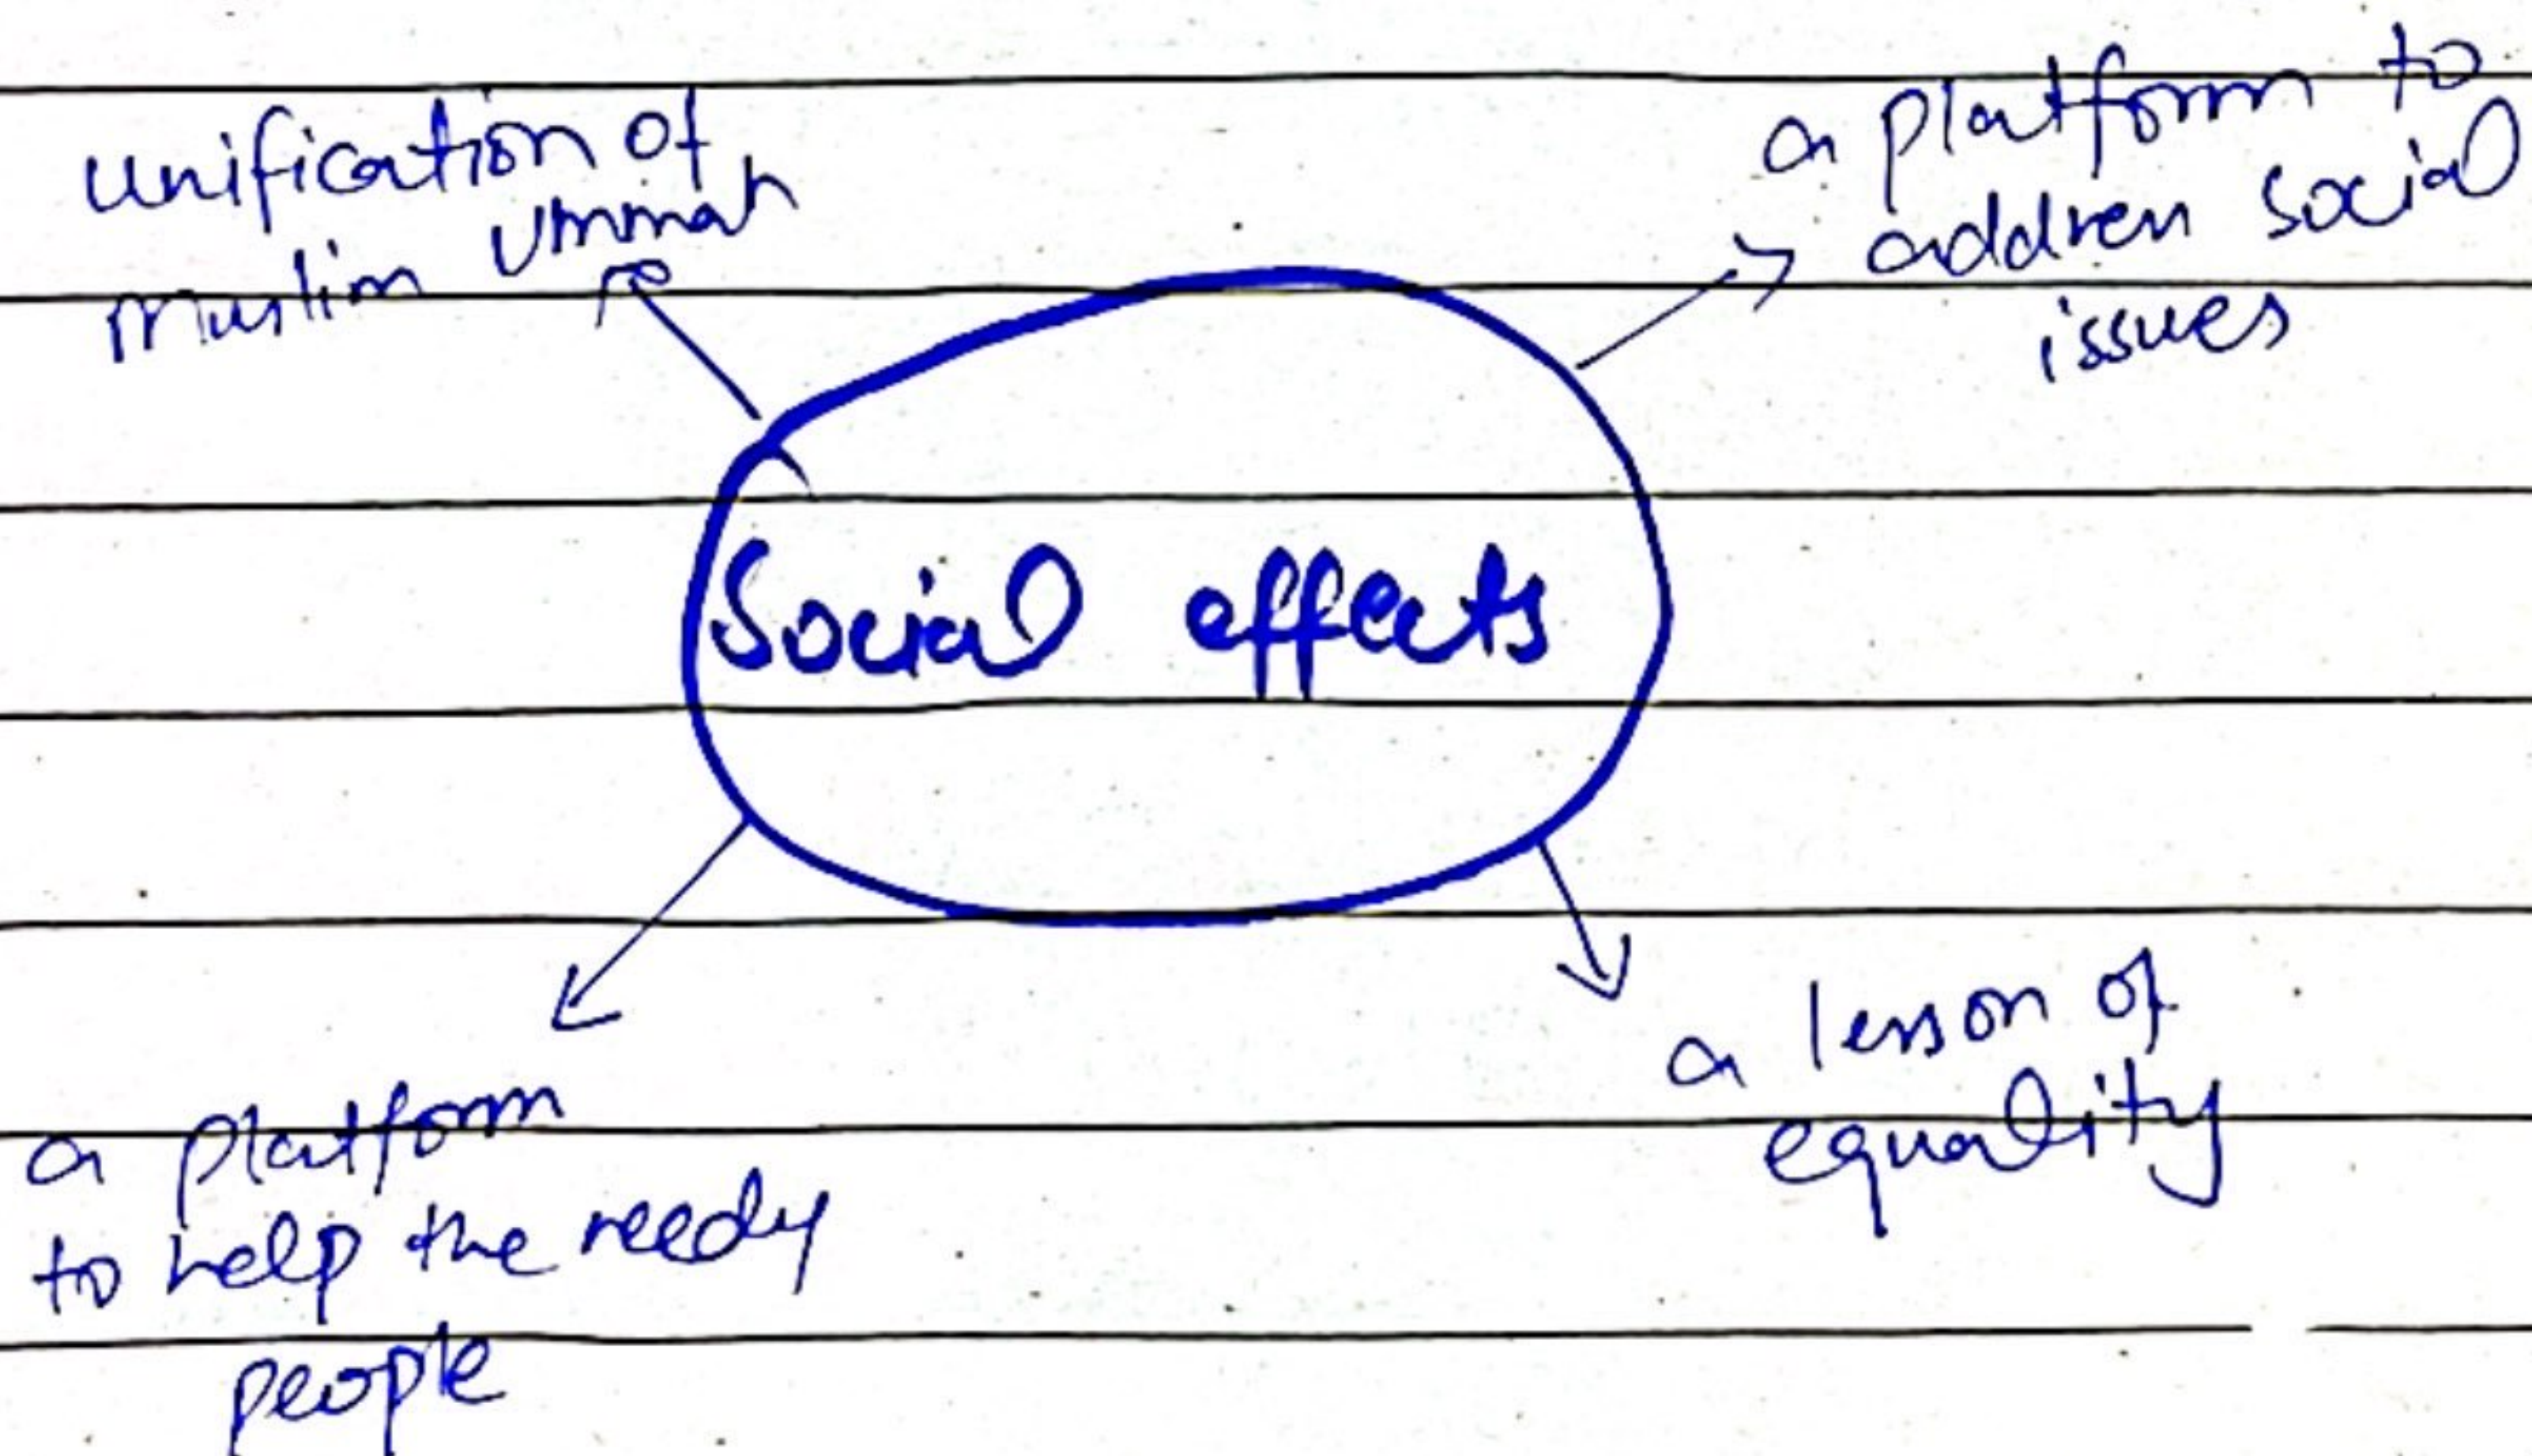 unification of
Muslim Ummah
a platform to
address social
issues
Social effects
a platform
to help the needy
people
a lesson of
equality